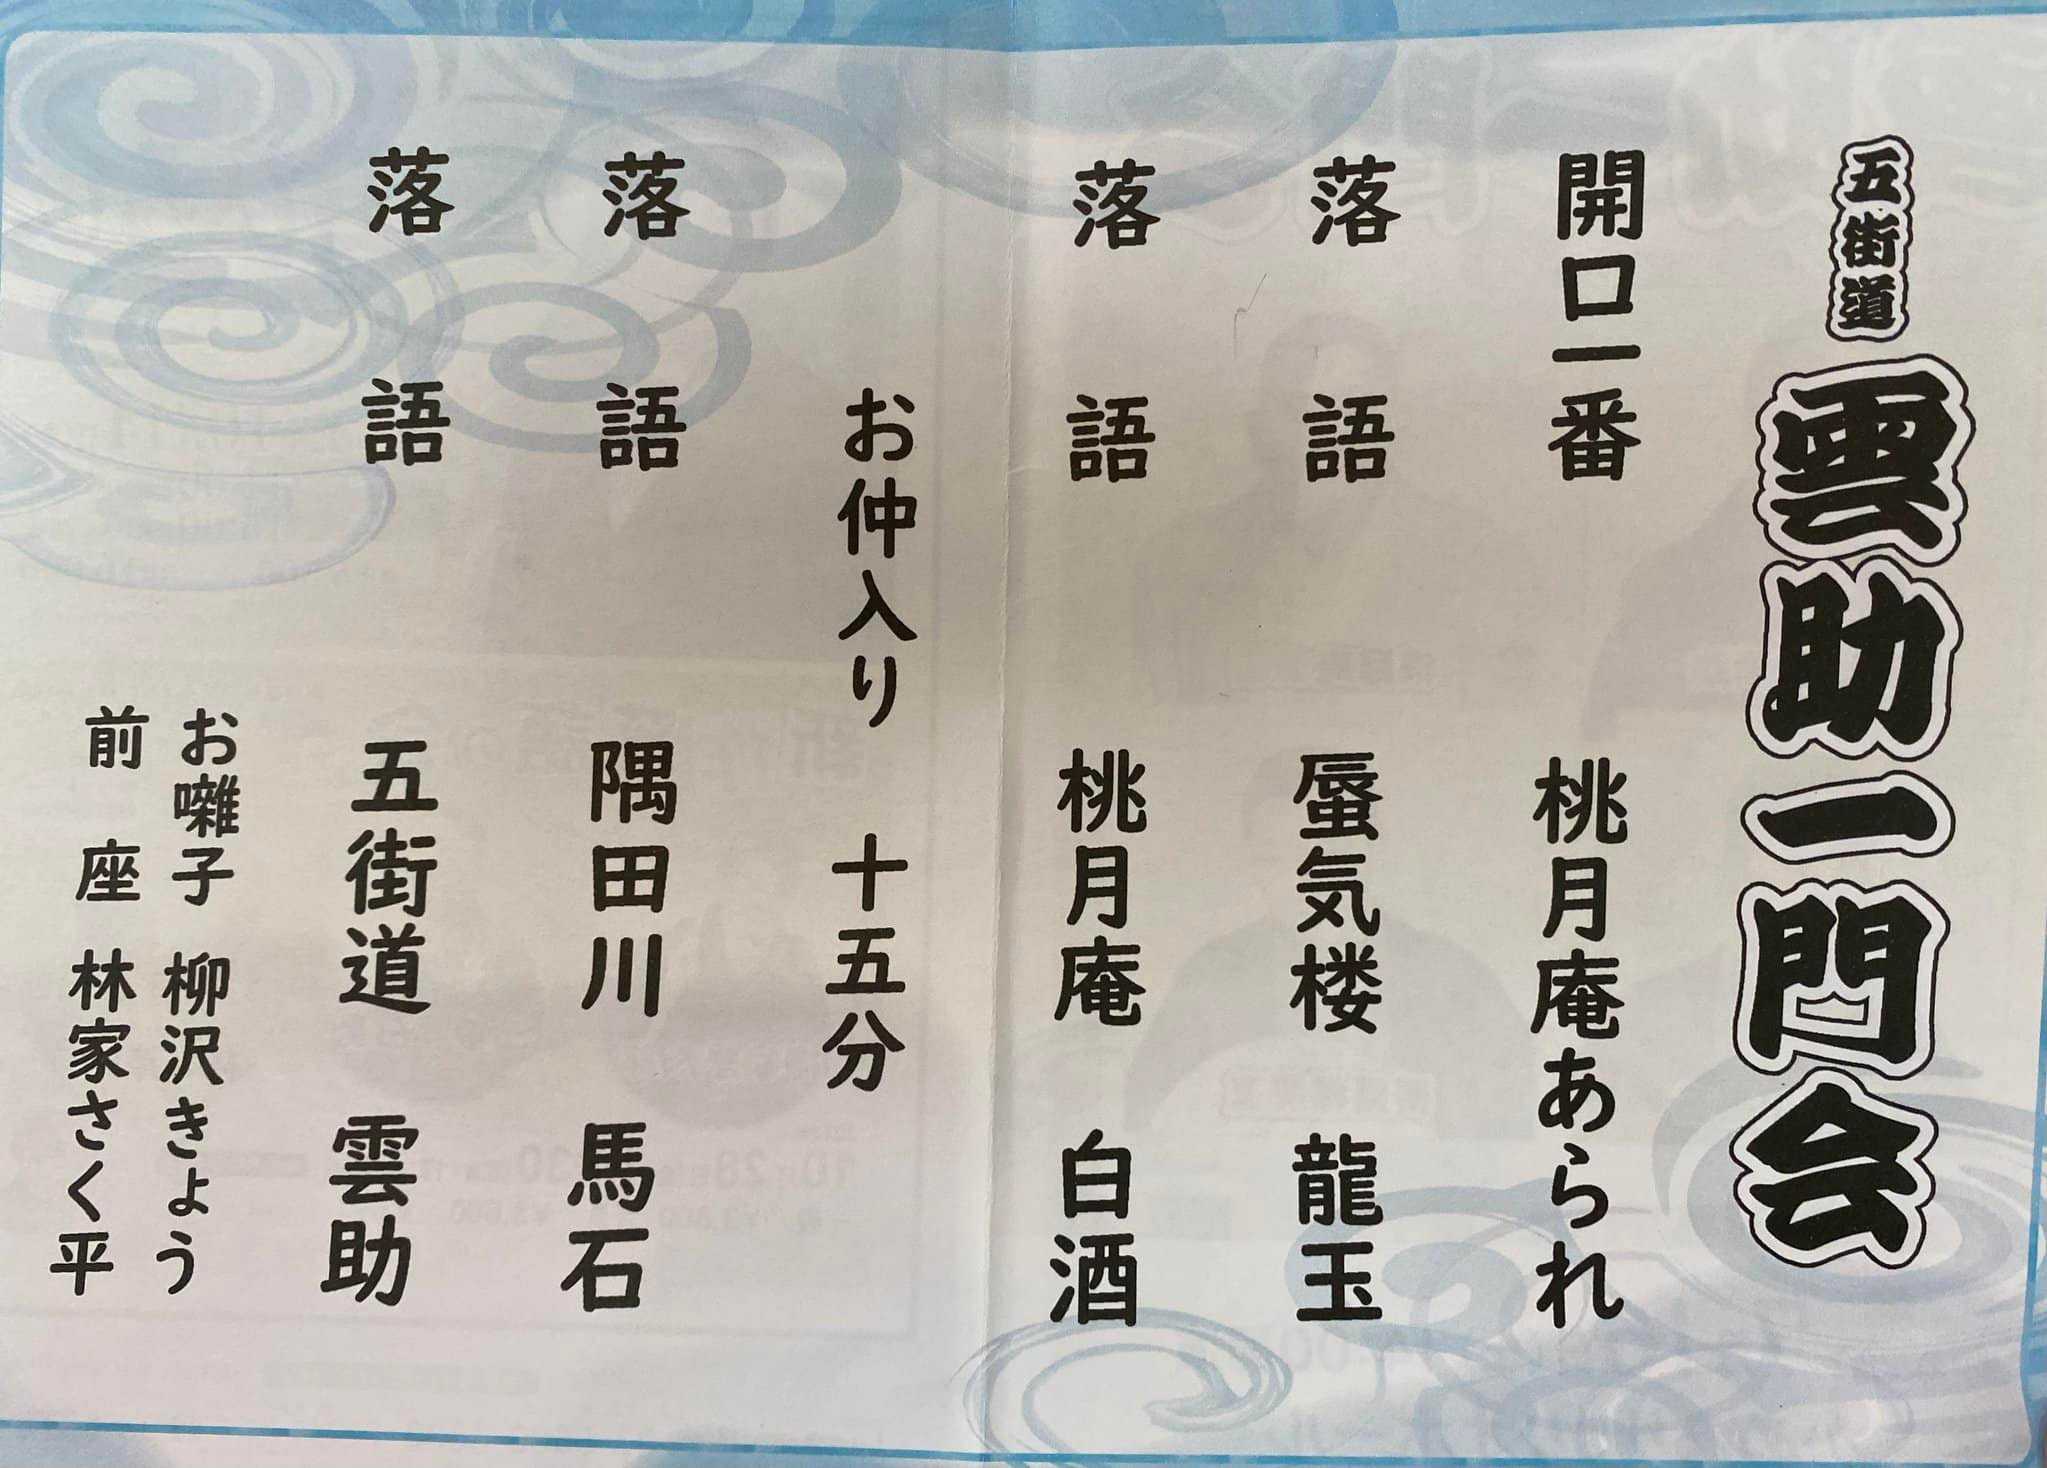 五街道 雲助一門会
開口一番 桃月庵あられ
落語 蜃気楼 龍玉
落語 桃月庵 白酒
お仲入り 十五分
落語 隅田川 馬石
落語 五街道 雲助
お囃子 柳沢きょう
前座 林家さく平